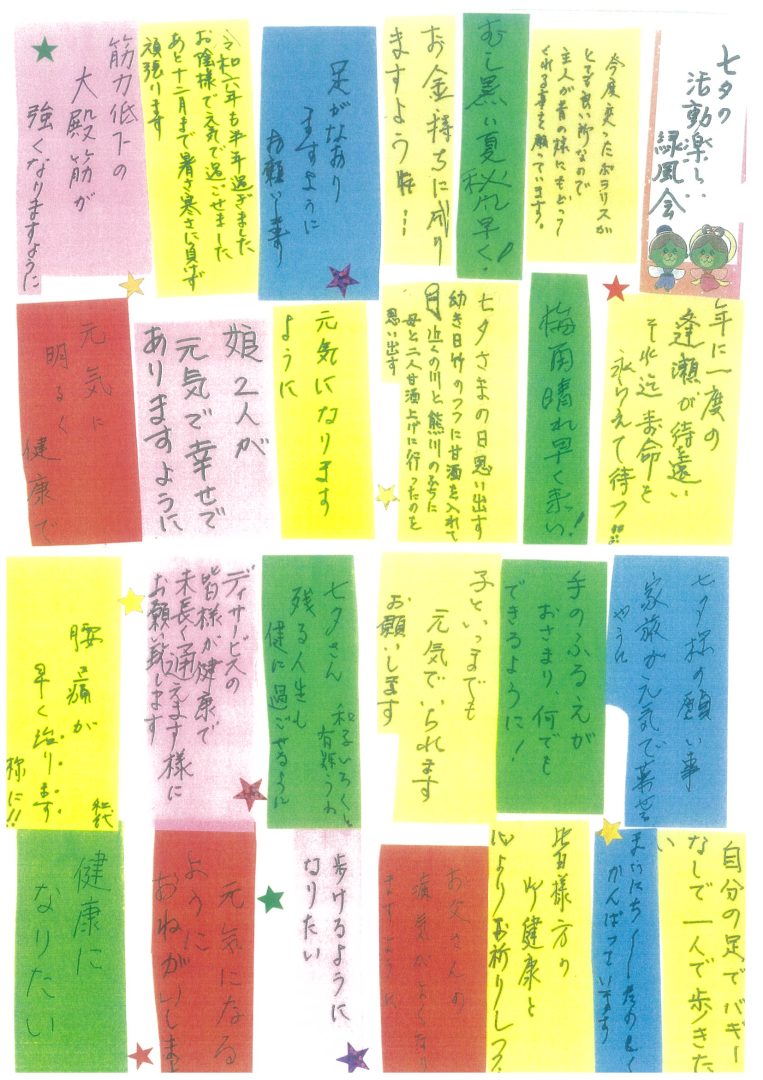 七夕の
活動楽しい
緑風会
今度変った
とても良い所なので
主人が昔の様にもどって
くれる事を願っています。
むし黒い夏
早く!
お金持ちに成り
ますよう
足がなおり
ますように
お願い
令和六年も半年過ぎました
お陰様で元気で過ごせました
あと十二月まで暑さ寒さに負けず
頑張ります
筋力低下の
大殿筋が
強くなりますように
年に一度の
逢瀬が待遠い
それ迄寿命を
永らえて待つ
梅雨晴れ早く来い!
七夕さまの日思い出す
幼き日竹のつつに甘酒を入れて
近くの川と熊川のふちに
母と二人甘酒上げに行ったのを
思い出す
元気になります
ように
娘2人が
元気で幸せで
ありますように
元気に
明るく
健康で
七夕様の願い事
家族が元気で
手のふるえが
おさまり、何でも
できるように!
子といつまでも
元気でいられます
お願いします
七夕さん
残る人生も
健に過ごせるように
ディサービスの
皆様が健康で
末長く通えます様に
お願い致します
腰痛が
早く治ります。
様に!!
自分の足でバギー
なしで一人で歩きた
い
まいにち
たのしく
がんばっています
皆様方の
御健康を
心よりお祈りしつ
お父さんの
病気がよくなり
ますように
歩けるように
なりたい
元気になる
ように
おねがいしま
健康に
なりたい